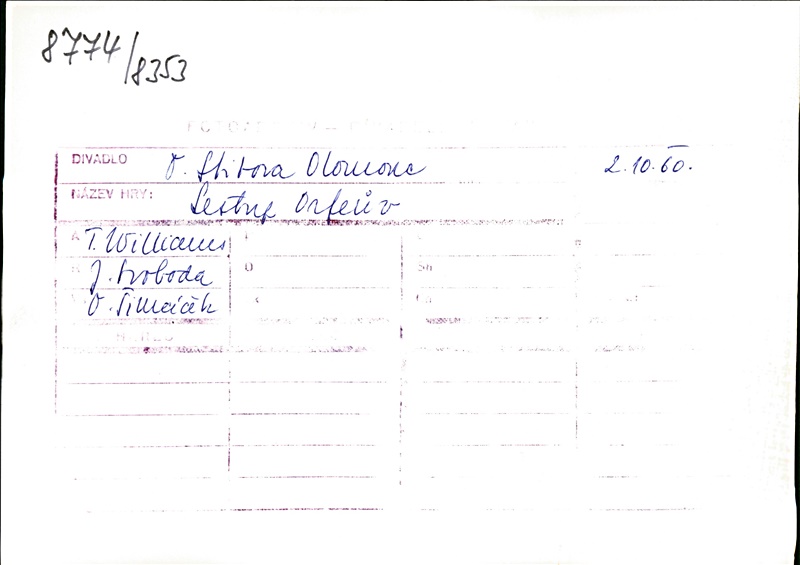 8774/8353
DIVADLO O. Stibora Olomouc 2.10.60.
NÁZEV HRY: Sestup Orfeův
T. Williams
J. Svoboda
O. Šimáček